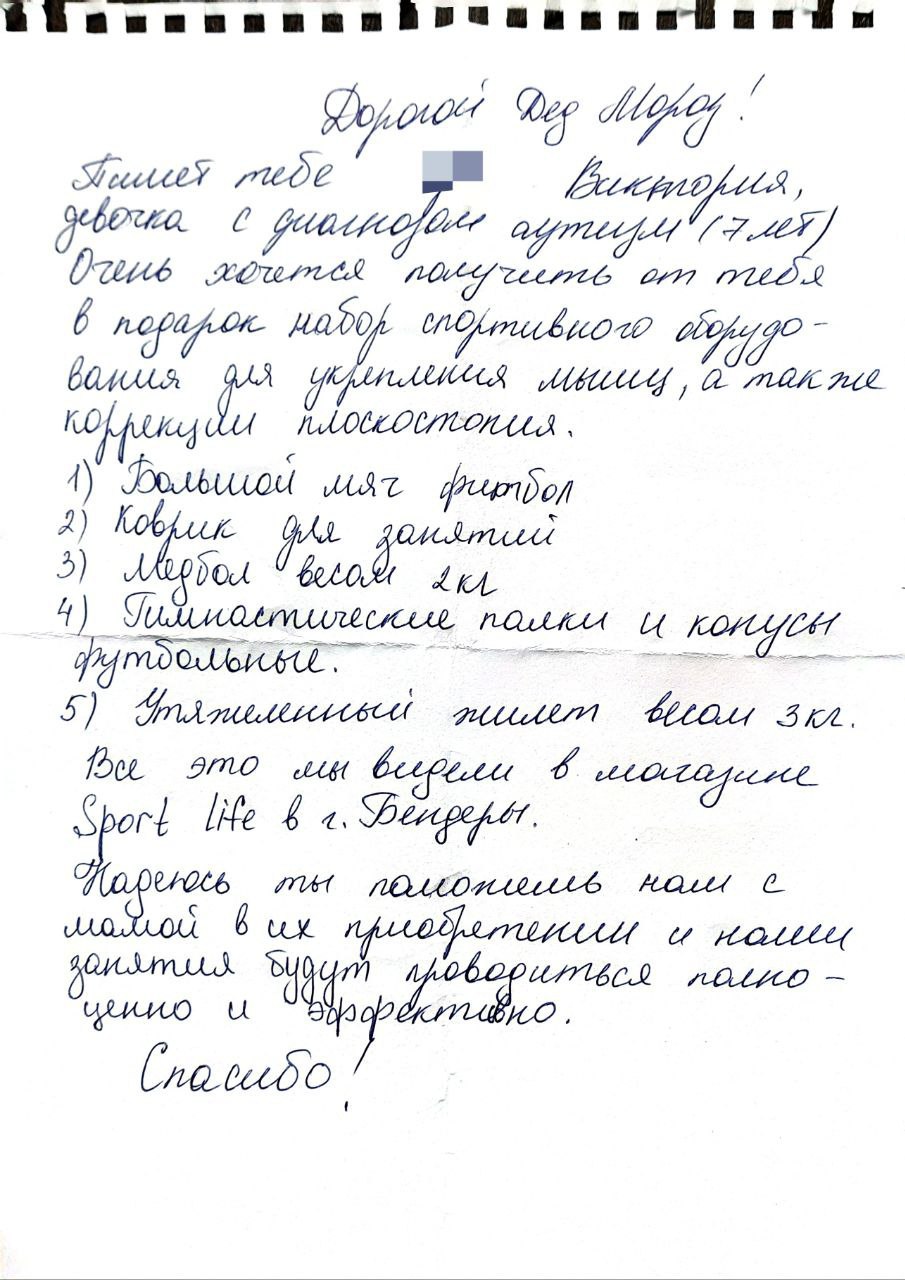 Дорогой Дед Мороз!
Пишет тебе Виктория,
девочка с диагнозом аутизм (7 лет)
Очень хочется получить от тебя
в подарок набор спортивного оборудо-
вания для укрепления мышц, а также
коррекции плоскостопия.
1) Большой мяч фитбол
2) Коврик для занятий
3) Медбол весом 2кг
4) Гимнастические палки и конусы
футбольные.
5) Утяжеленный жилет весом 3кг.
Все это мы видели в магазине
Sport life в г. Бендеры.
Надеюсь ты поможешь нам с
мамой в их приобретении и наши
занятия будут проводиться полно-
ценно и эффективно.
Спасибо!